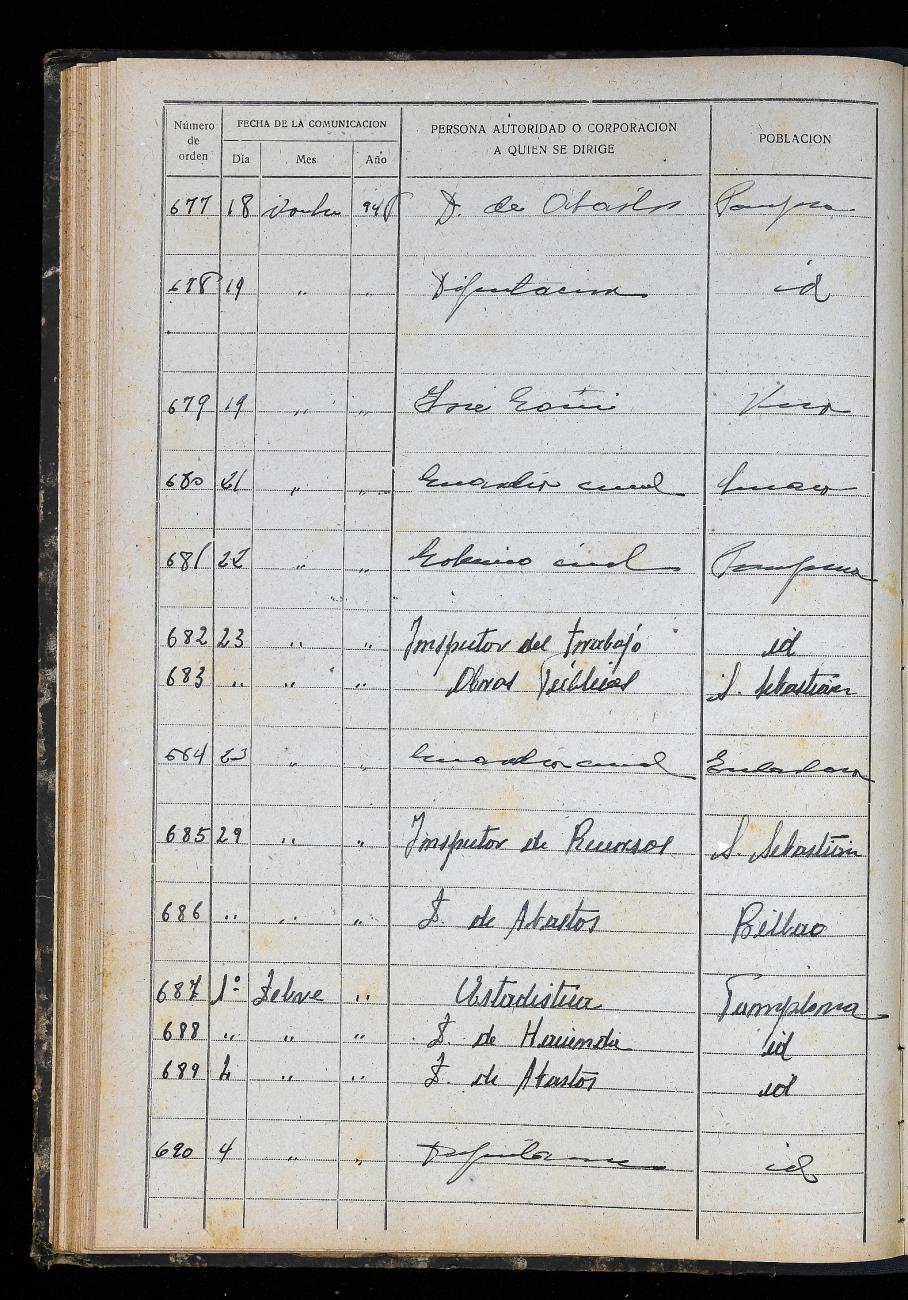 Número de orden FECHA DE LA COMUNICACION PERSONA AUTORIDAD O CORPORACION A QUIEN SE DIRIGE POBLACION
Día Mes Año
677 18 94 D. de Abastos Pampna
678 19 " " Diputacion id
679 19 " " Jose Goñi Vera
680 21 " " Guardia civil
681 22 " " Gobierno civil Pamplona
682 23 " " Inspector del trabajo id
683 " " " Obras Públicas S. Sebastián
684 23 " " Guardia civil
685 29 " " Inspector de Recursos S. Sebastián
686 " " " D. de Abastos Bilbao
687 1º Febre " Estadistica Pamplona
688 " " " D. de Hacienda id
689 2 " " D. de Abastos id
690 4 " " Diputacion id